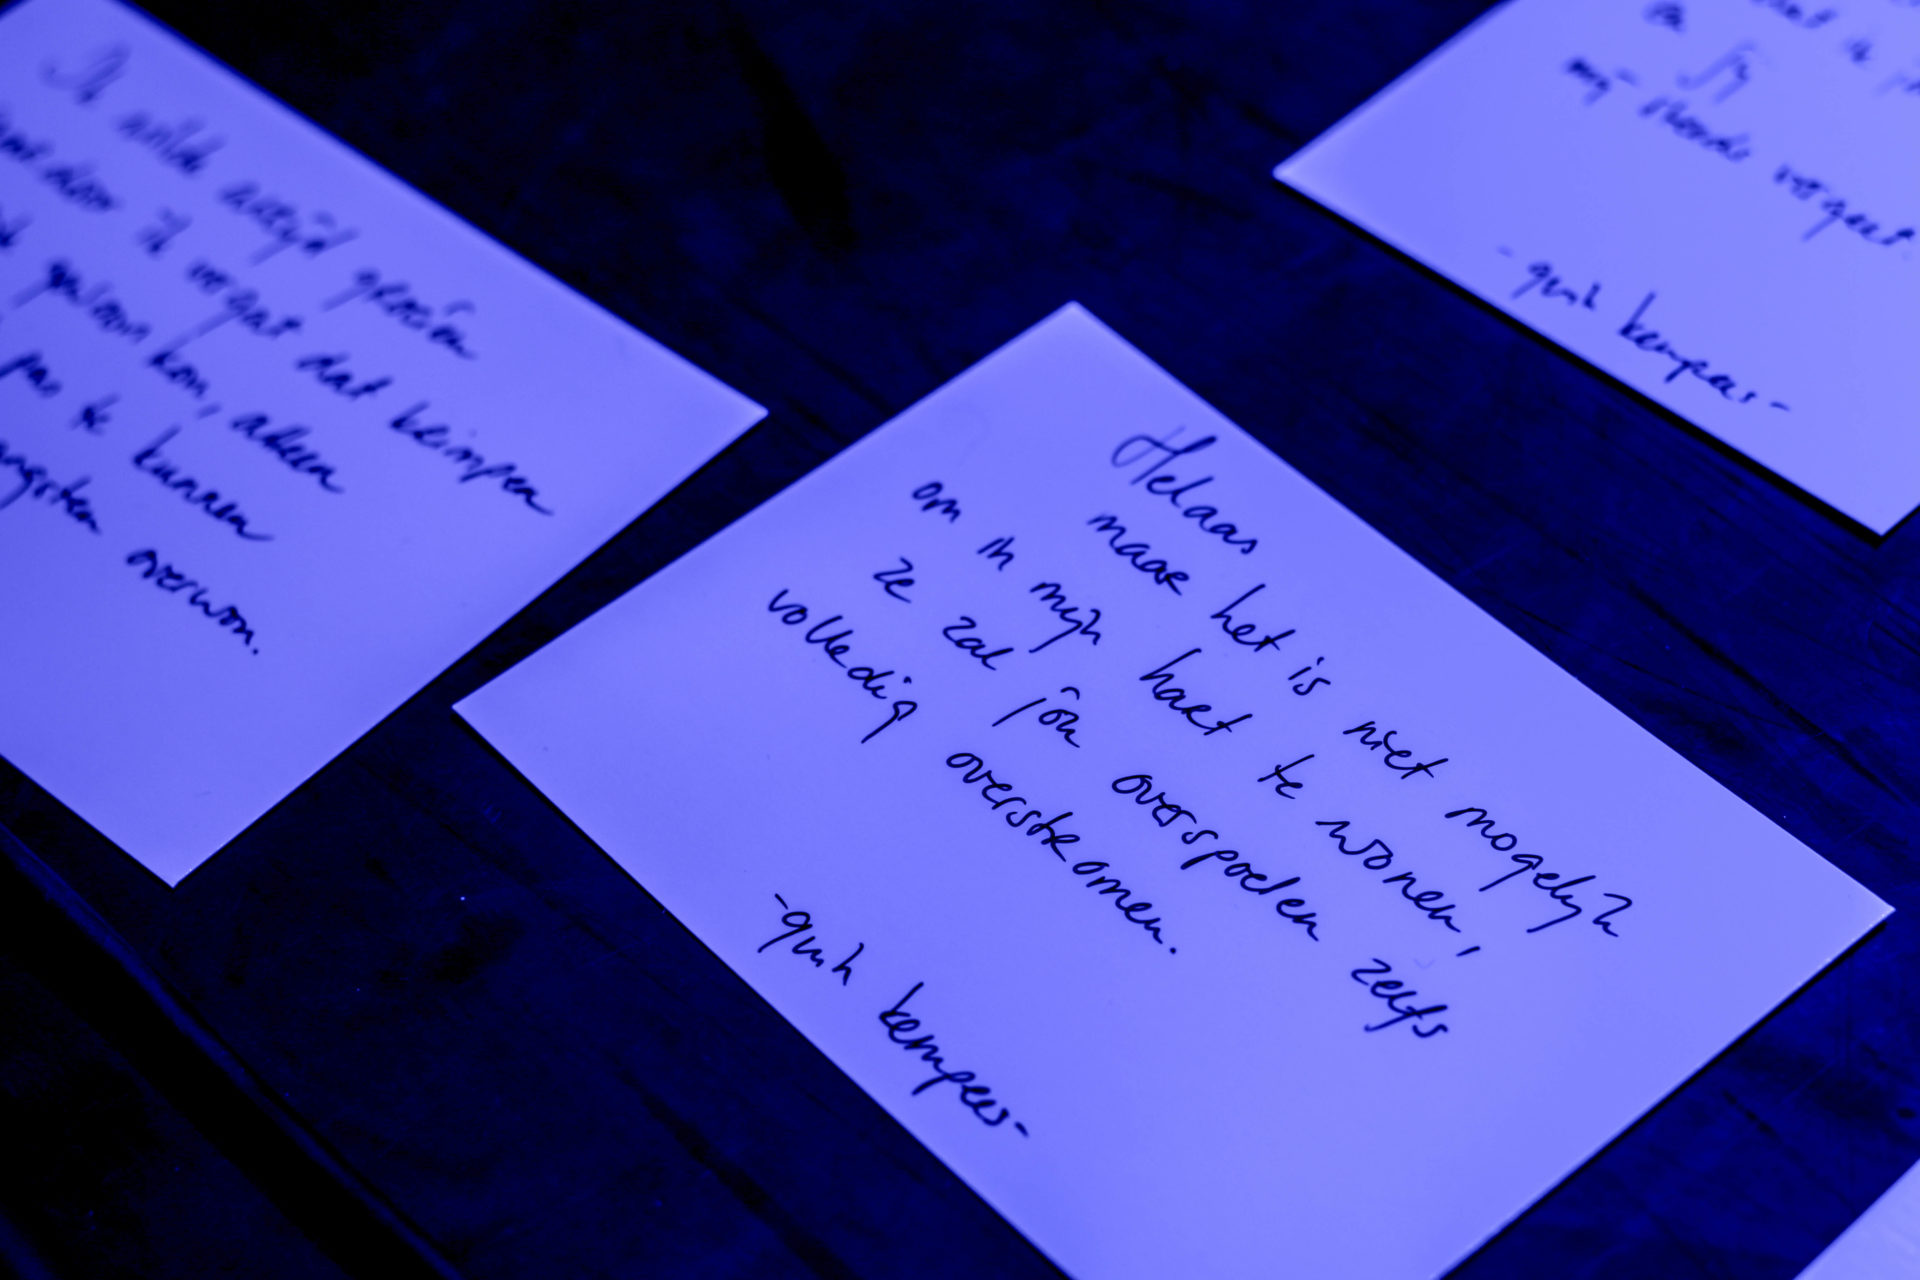 Ik wilde altijd groeien
door ik vergat dat krimpen
gewoon kon, alleen
pas te kunnen
angsten overwon.
Helaas
maar het is niet mogelijk
om in mijn hart te wonen,
ze zal jou overspoelen zelfs
volledig overstromen.
-quin kempees-
en jij
mij steeds vergeet.
-quin kempees-